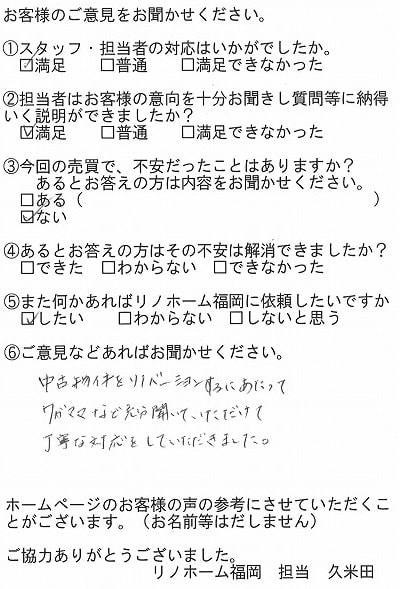 お客様のご意見をお聞かせください。
①スタッフ・担当者の対応はいかがでしたか。
☑満足　□普通　□満足できなかった
②担当者はお客様の意向を十分お聞きし質問等に納得
いく説明ができましたか？
☑満足　□普通　□満足できなかった
③今回の売買で、不安だったことはありますか？
あるとお答えの方は内容をお聞かせください。
□ある（　　　　　　　　　　）
☑ない
④あるとお答えの方はその不安は解消できましたか？
□できた　□わからない　□できなかった
⑤また何かあればリノホーム福岡に依頼したいですか
☑したい　□わからない　□しないと思う
⑥ご意見などあればお聞かせください。
中古物件をリノベーションするにあたって
ワガママなど充分聞いていただけて
丁寧な対応をしていただきました。
ホームページのお客様の声の参考にさせていただくこ
とがございます。（お名前等はだしません）
ご協力ありがとうございました。
リノホーム福岡　担当　久米田